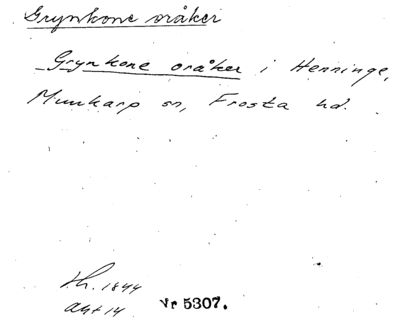 Grynkone oråker
Grynkone oråker i Henninge,
Munkarp sn, Frosta hd.
Lh. 1844
Akt 14 Vr 5307.